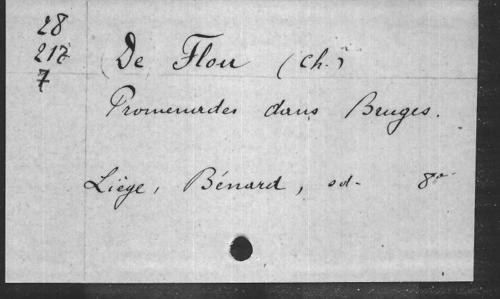 28
217
7
De Flou (Ch.)
Promenades dans Bruges.
Liège, Bénard, sd. 8°